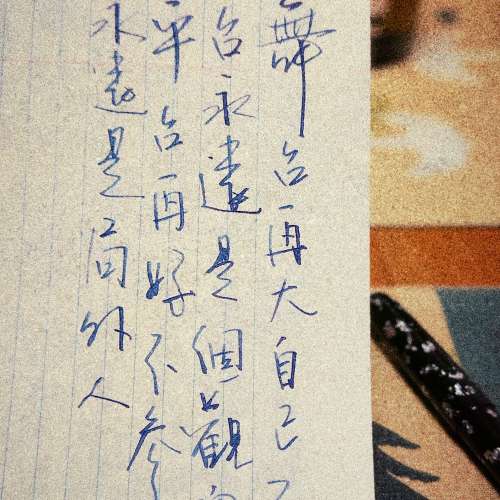 舞台再大自己
台永遠是個觀
平台再好不參
永遠是局外人